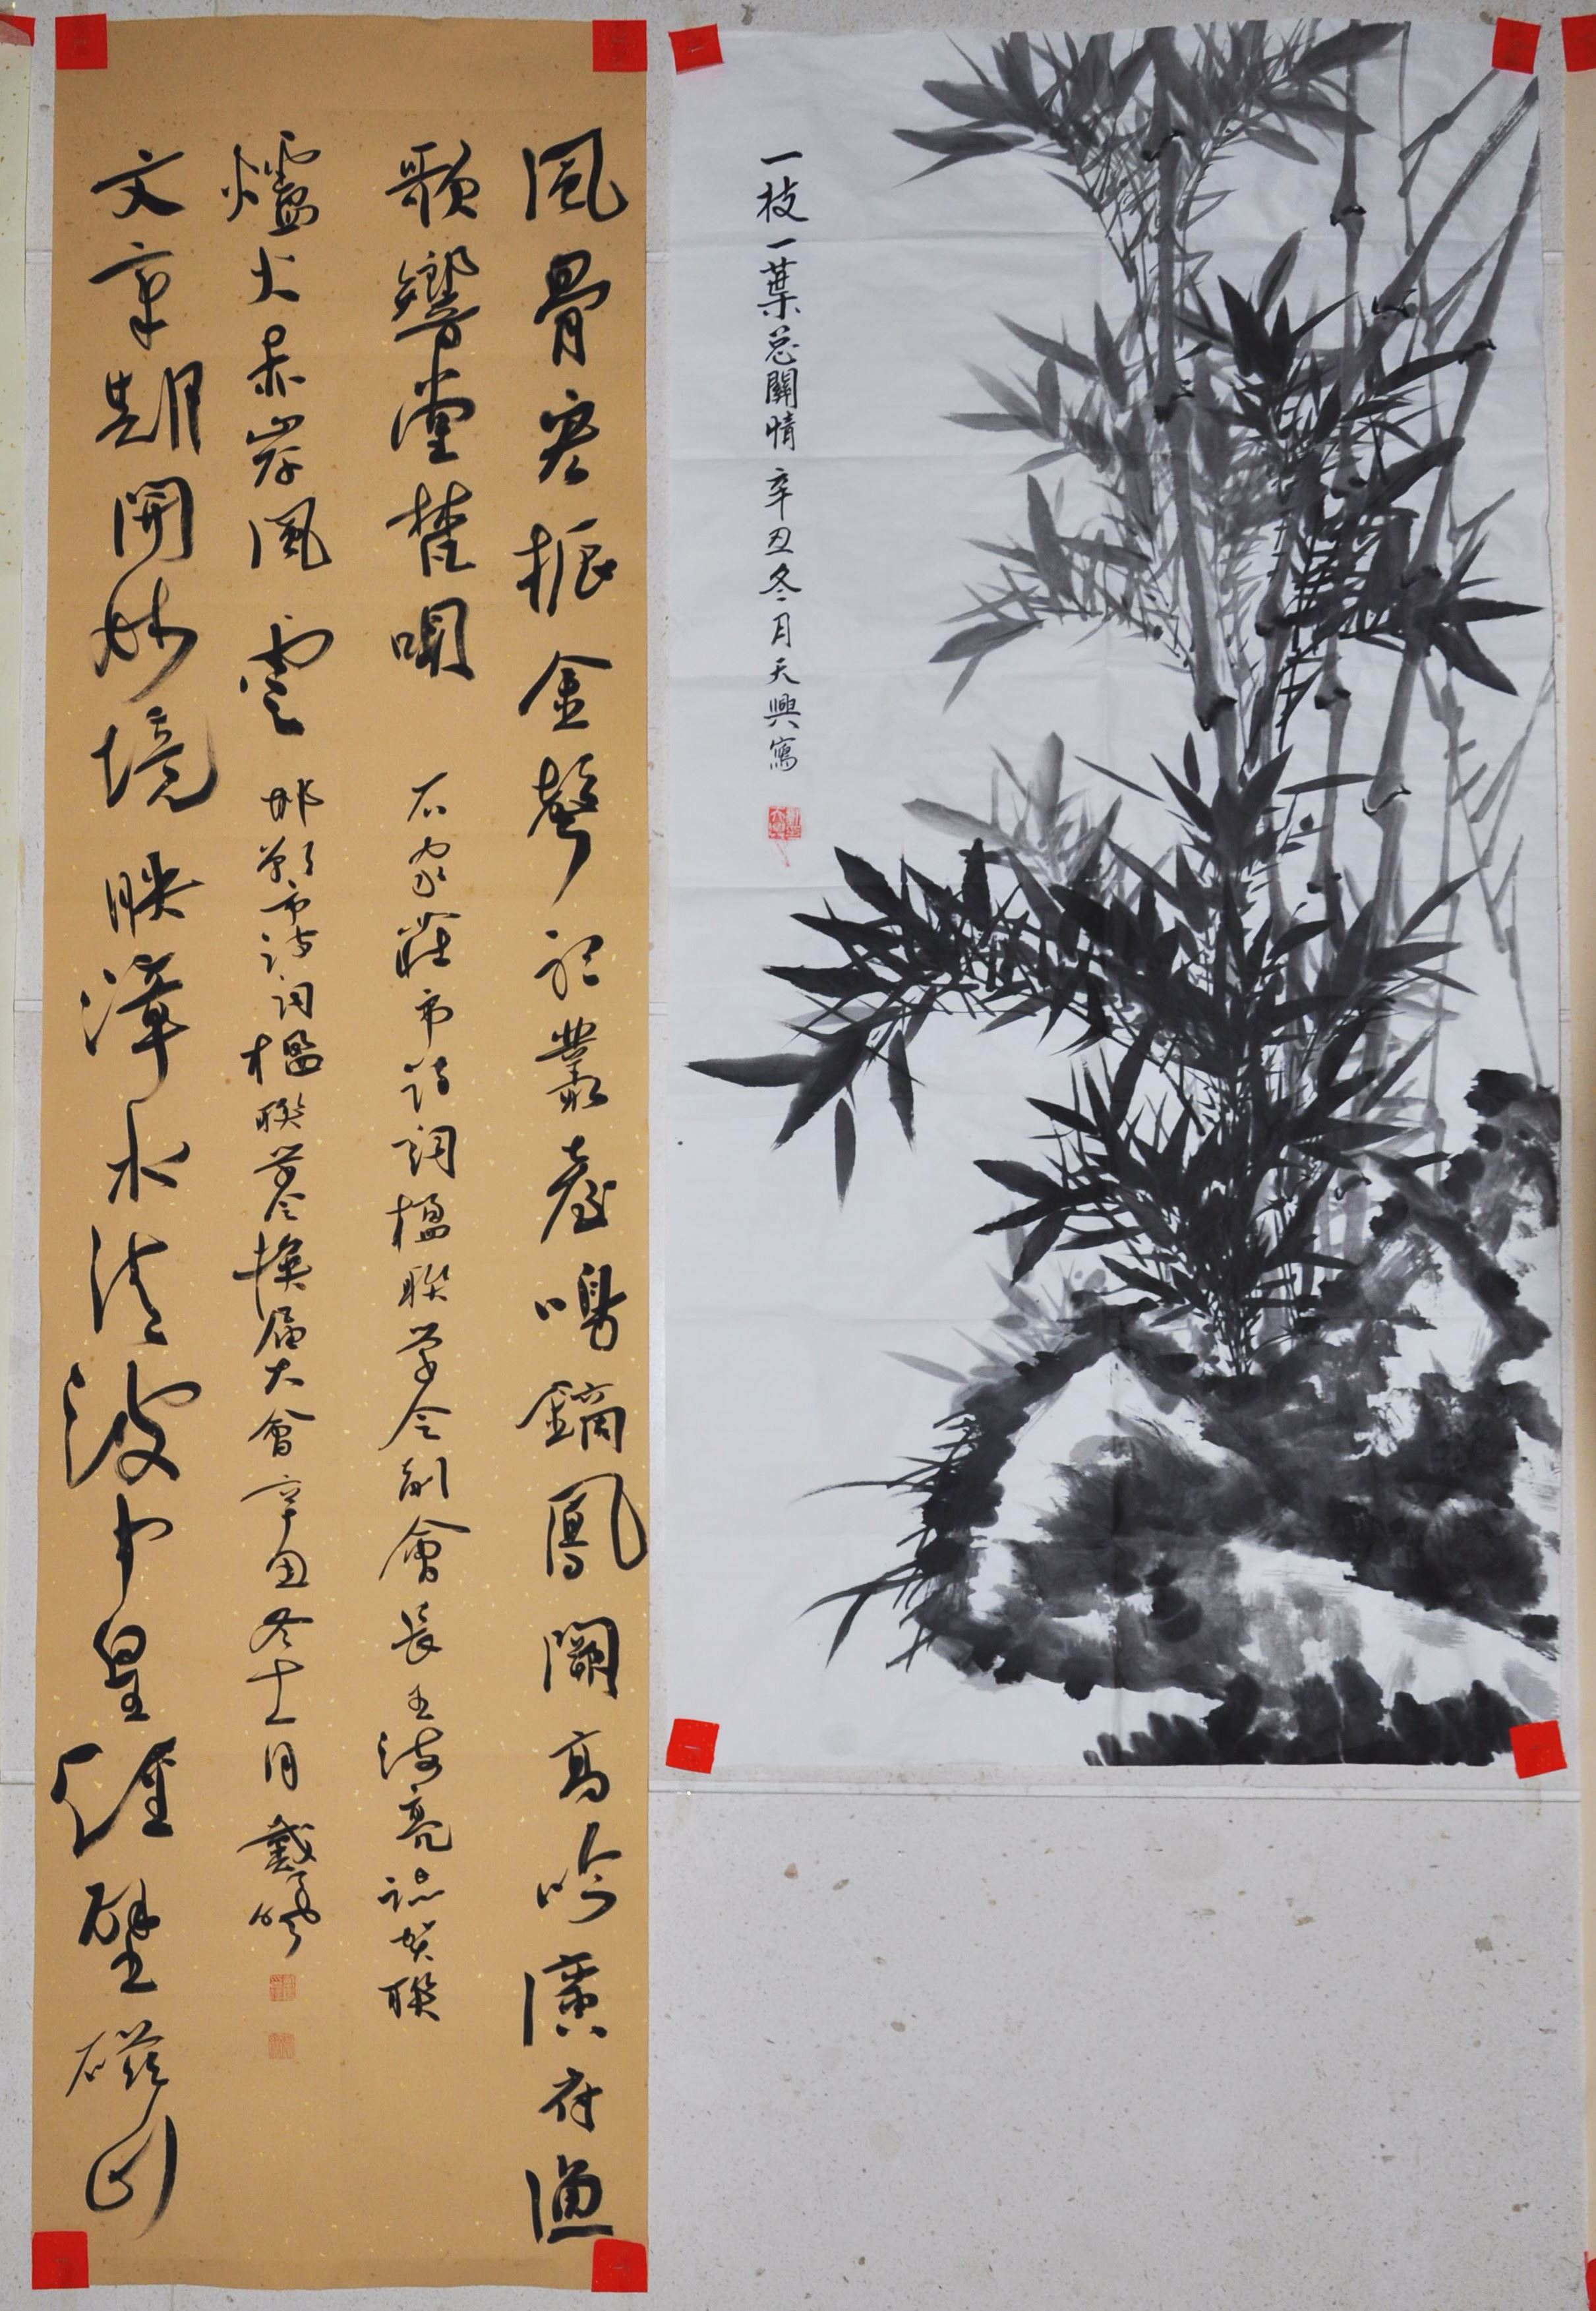 風骨振金聲記叢臺鳴鏑鳳闕高吟廣府漁
歌響堂梵唄
石家莊市詩詞楹聯學會副會長王海亮誌賀聯
文章期開妙境映漳水清波中皇崖壁磁山
爐火赤岸風雲
邯鄲市詩詞楹聯學會換屆大會辛丑冬十一月戴
一枝一葉总關情辛丑冬月天興寫